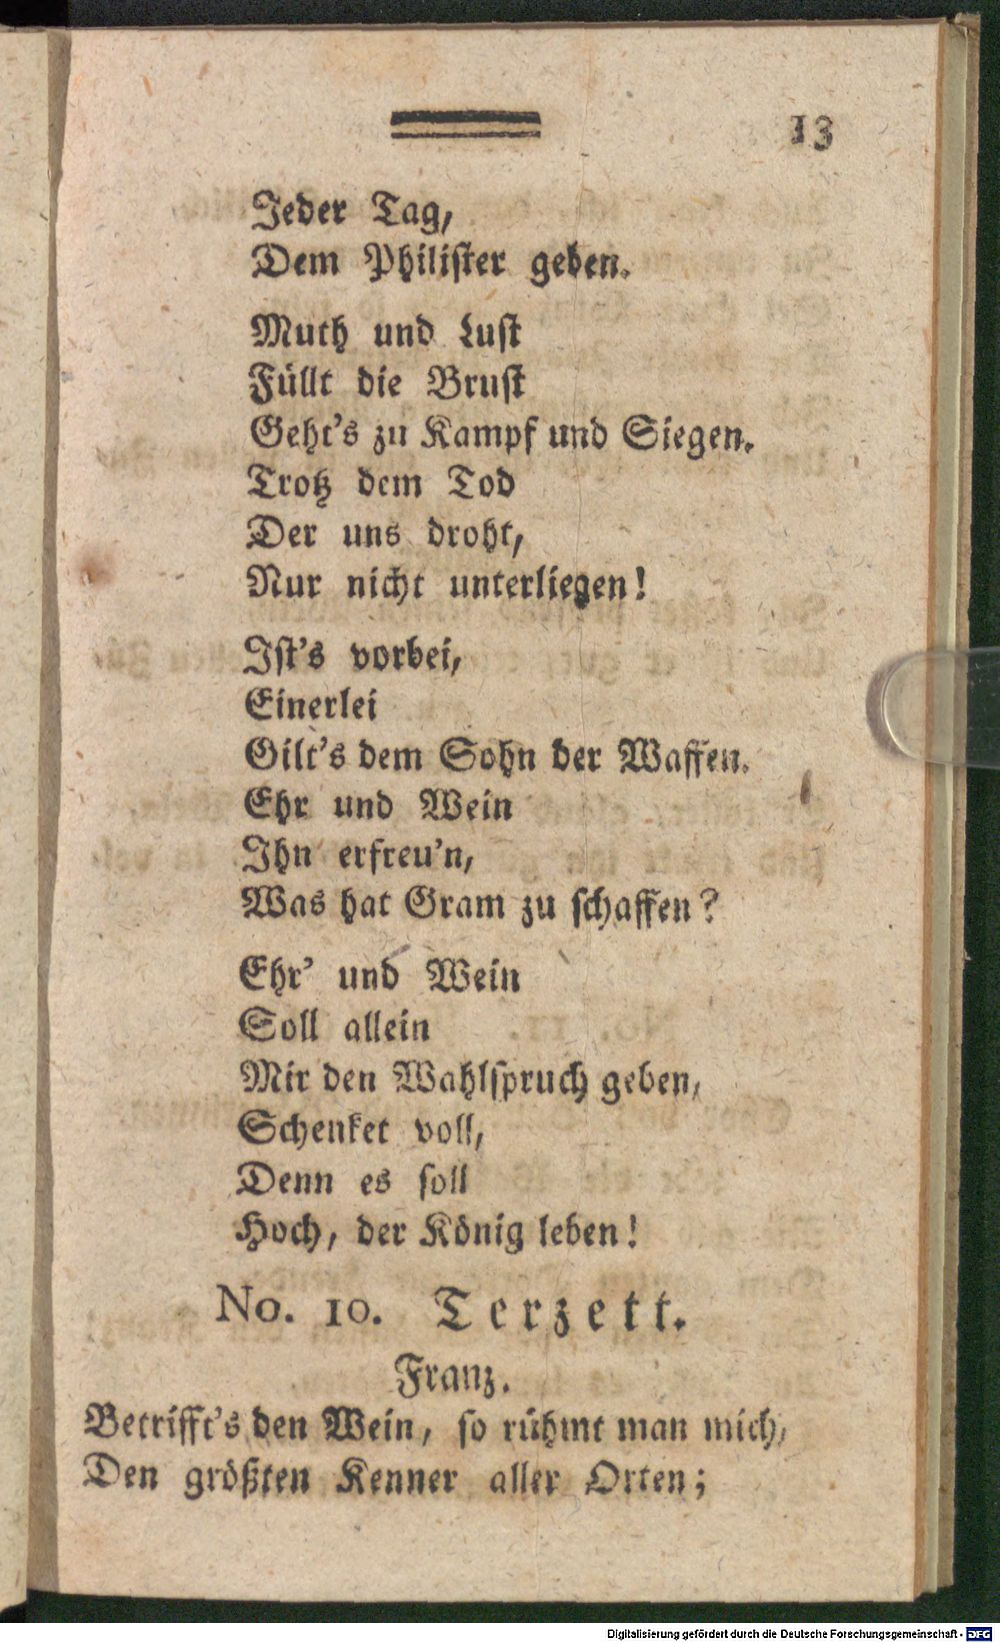 13
Jeder Tag,
Dem Philister geben.
Muth und Lust
Füllt die Brust
Geht's zu Kampf und Siegen.
Trotz dem Tod
Der uns droht,
Nur nicht unterliegen!
Ist's vorbei,
Einerlei
Gilt's dem Sohn der Waffen.
Ehr und Wein
Ihn erfreu'n,
Was hat Gram zu schaffen?
Ehr' und Wein
Soll allein
Mir den Wahlspruch geben,
Schenket voll,
Denn es soll
Hoch, der König leben!
No. 10. Terzett.
Franz.
Betrifft's den Wein, so rühmt man mich,
Den größten Kenner aller Orten;
Digitalisierung gefördert durch die Deutsche Forschungsgemeinschaft - DFG